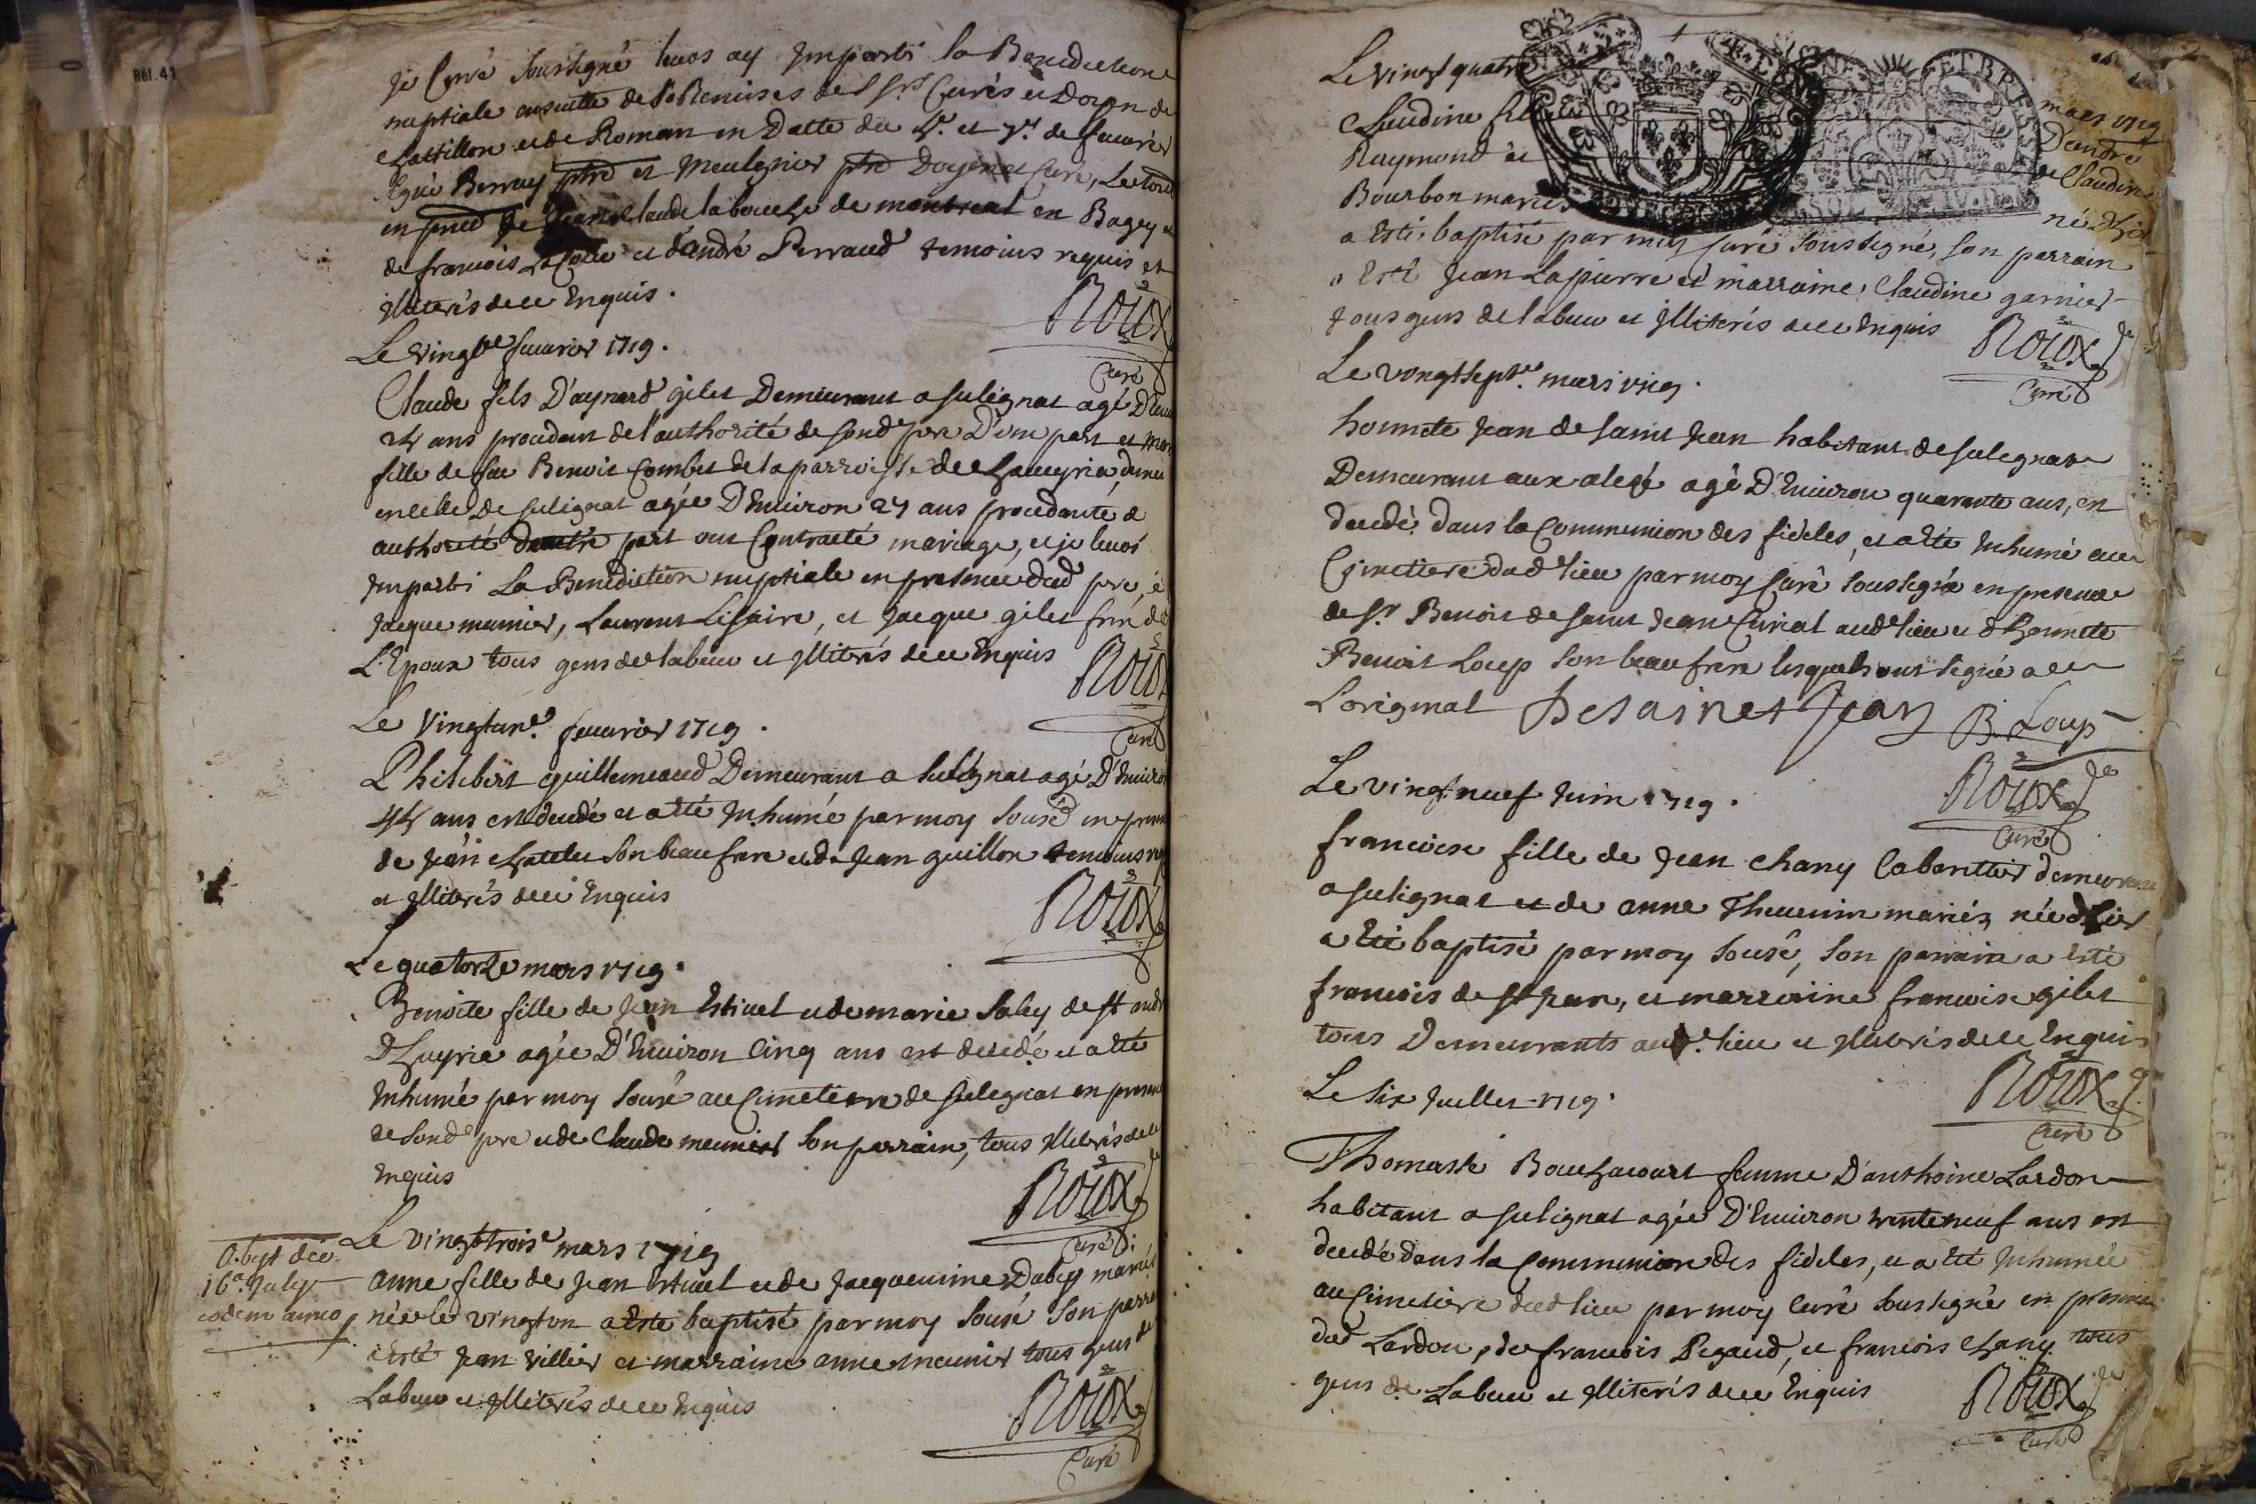 Ref. 41
je Curé soussigné leurs ay Imparti la Benediction
nuptiale ensuitte de Remises des Srs Curés et Doyen de
Chattillon et de Romans en Datte du 4e. et 7e. de feuvrier
signé Berruy ptre et Meulgnier ptre Doyen et Curé, Le tout
en pnce de Jean Claude labouche de montreal en Bugey et
de francois et d'andré Perraud temoins requis et
Illiterés de ce Enquis.
Roux
Curé
Le Vingte feuvrier 1719.
Claude fils D'aynard gilet Demeurant a sulignat agé D'envi
24 ans procedant de l'authorité de sond. pere D'une part et
fille de feu Benoit Combet de la parroisse de Laueyria, demeu
en celle De sulignat agée D'Environ 27 ans procedante
authorité d'autre part ont Contracté mariage, et je leurs
Imparti La Benediction nuptiale en presence dud. pere, et
Jacque munier, Laurent Lisaire, et Jacque gilet frere de
L'Epoux tous gens de labeur et Illiterés de ce Enquis
Roux
Curé
Le Vingtune. feuvrier 1719.
Philibert guillemeaud Demeurant a Sulignat agé D'Environ
44 ans est decedé et a eté Inhumé par moy Sousé. en presen
de Jean chatelet son beaufrere et de Jean guillon temoins req
et Illiterés de ce Enquis
Roux
Le quatorze mars 1719.
Benoite fille de Jean Estiuet et de marie Saley de st andré
D'huyria agée D'Environ Cinq ans est decedé et a eté
Inhumé par moy Sousé au Cimetiere de sulegnat en presence
de sond. pere et de Claude meunier son parrain, tous Illiterés de ce
Enquis
Roux
Curé
Le vingttroise mars 1719
Obyt die
16a July
eodem anno
anne fille de Jean Estiuet et de Jacquemine Dubey mariés
née le vingtun a Esté baptisé par moy Sousé Son parra
a Esté Jean Villier et marraine anne meunier tous gens de
Labeur et Illiterés de ce Enquis
Roux
Curé
Le vingt quatre mars 1719
Claudine D'andré
Raymond et de Claudine
Bourbon mariés née hier
a Esté baptisé par moy Curé soussigné, son parrain
a Esté Jean Lapierre et marraine Claudine garnier
tous gens de labeur et Illiterés de ce Enquis
Roux
Curé
Le vingtsepte. mars 1719.
honnete Jean de saint Jean habitant de sulegnat
Demeurant aux agé D'Environ quarante ans, est
decedé dans la Communion des fideles, et a eté Inhumé au
Cimettiere dud. lieu par moy Curé soussigné en presence
de Sr. Benoit de saint Jean Curial aud. lieu et d'honnete
Benoit Loup son beaufrere lesquels ont signé a
L'original Desainet Jean B. Loup
Roux
Curé
Le vingt neuf Juin 1719.
francoise fille de Jean chany Cabarettier demeurant
a sulignat et de anne Theuenin mariés, née d'hier
a Eté baptisé par moy Sousé, Son parrain a Esté
francois de st Jean, et marraine francoise gilet
tous Demeurants aud. lieu et Illiterés de ce Enquis
Roux
Curé
Le six Juillet 1719.
Thomasse Bouchacourt femme D'anthoine Lardon
habitant a sulignat agée D'Environ trente neuf ans est
decedé dans la Communion des fideles, et a eté Inhumée
au Cimetiere dud. lieu par moy Curé soussigné en presence
dud. Lardon, de francois Pegaud, et francois chany tous
gens de Labeur et Illiterés de ce Enquis
Roux
Curé